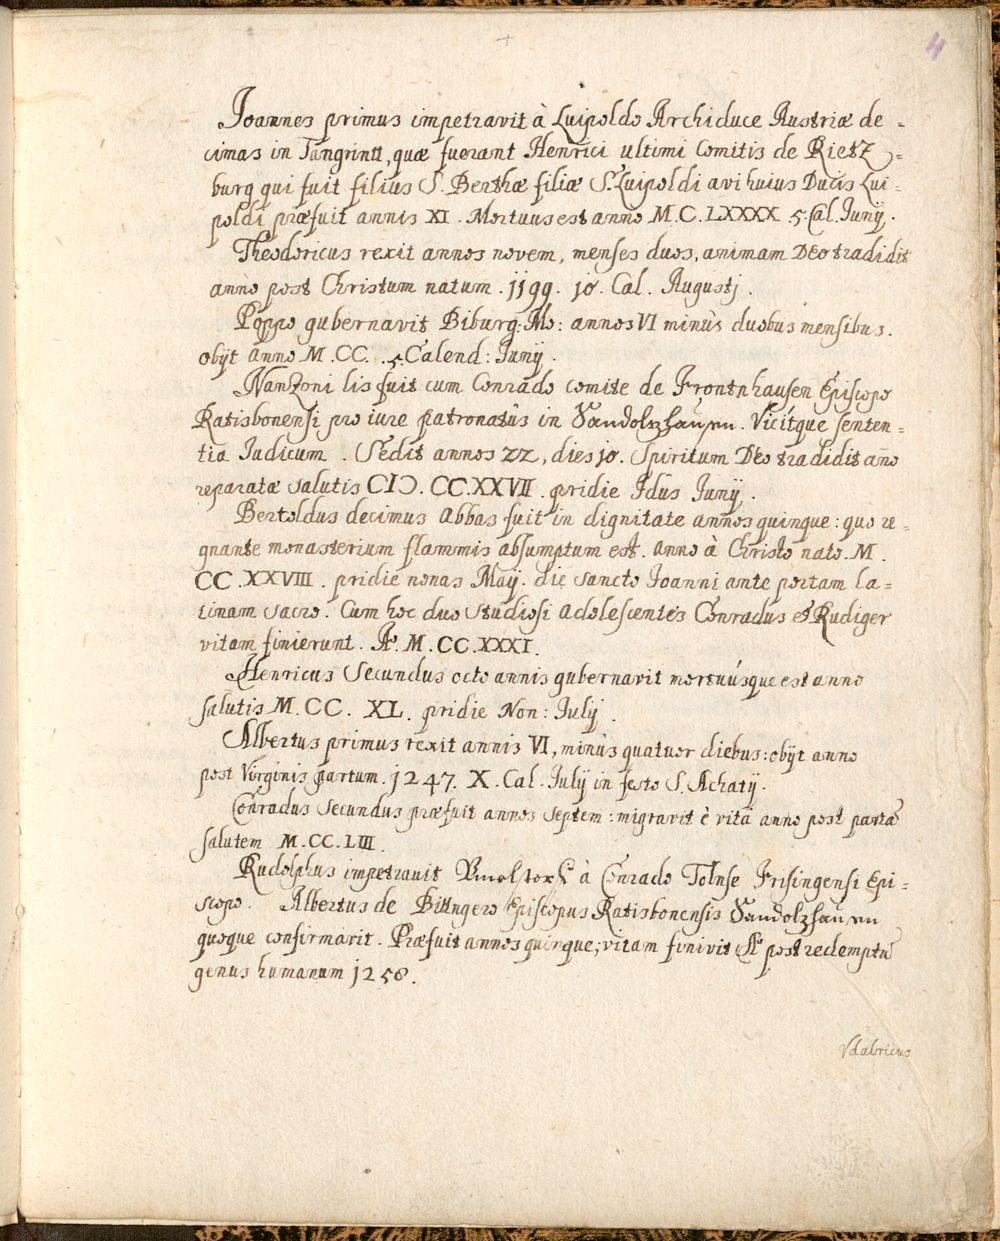 4
Ioannes primus impetravit à Luipoldo Archiduce Austriæ de-
cimas in Tangrintl, quæ fuerant Henrici ultimi Comitis de Rietz-
burg qui fuit filius S. Berthæ filiæ S. Luipoldi avi huius Ducis Lui-
poldi præfuit annis XI. Mortuus est anno M.C.LXXXX 5. Cal. Junij.
Theodericus rexit annos novem, menses duos, animam DEo tradidit
anno post Christum natum. 1199. 10. Cal. Augustj.
Poppo gubernavit Biburg: Mo: annos VI minùs duobus mensibus.
obijt anno M.CC. 5. Calend: Junij.
Nanzoni lis fuit cum Conrado comite de Frontnhausen Episcopo
Ratisbonensi pro iure patronatûs in Sandolzhausen. Vicítque senten-
tia Iudicum. Sedit annos 22, dies 10. Spiritum DEo tradidit ano
reparatæ salutis CIƆ. CC.XXVII. pridie Idus Junij.
Bertoldus decimus Abbas fuit in dignitate annos quinque: quo re-
gnante monasterium flammis absumptum est. anno à Christo nato. M.
CC.XXVIII. pridie nonas Maij. die sancto Ioanni ante portam la-
tinam sacro. Cum hoc duo studiosi adolescentes Conradus et Rudiger
vitam finierunt. Aº M.CC.XXXI.
Henricus Secundus octo annis gubernavit mortuúsque est anno
salutis M.CC. XL. pridie Non: Julij.
Albertus primus rexit annis VI, minùs quatuor diebus: obijt anno
post Virginis partum. 1247. X. Cal. Julij in festo S. Achatij.
Conradus Secundus præfuit annos septem: migravit è vitâ anno post partā
salutem M.CC.LIII.
Rudolphus impetrauit à Conrado Tolnse Frisingensi Epi-
scopo. Albertus de Bittngero Episcopus Ratisbonensis Sandolzhausen
quoque confirmarit. Præfuit annos quinque, vitam finivit Aº post redemptū
genus humanum 1258.
Vdalricus